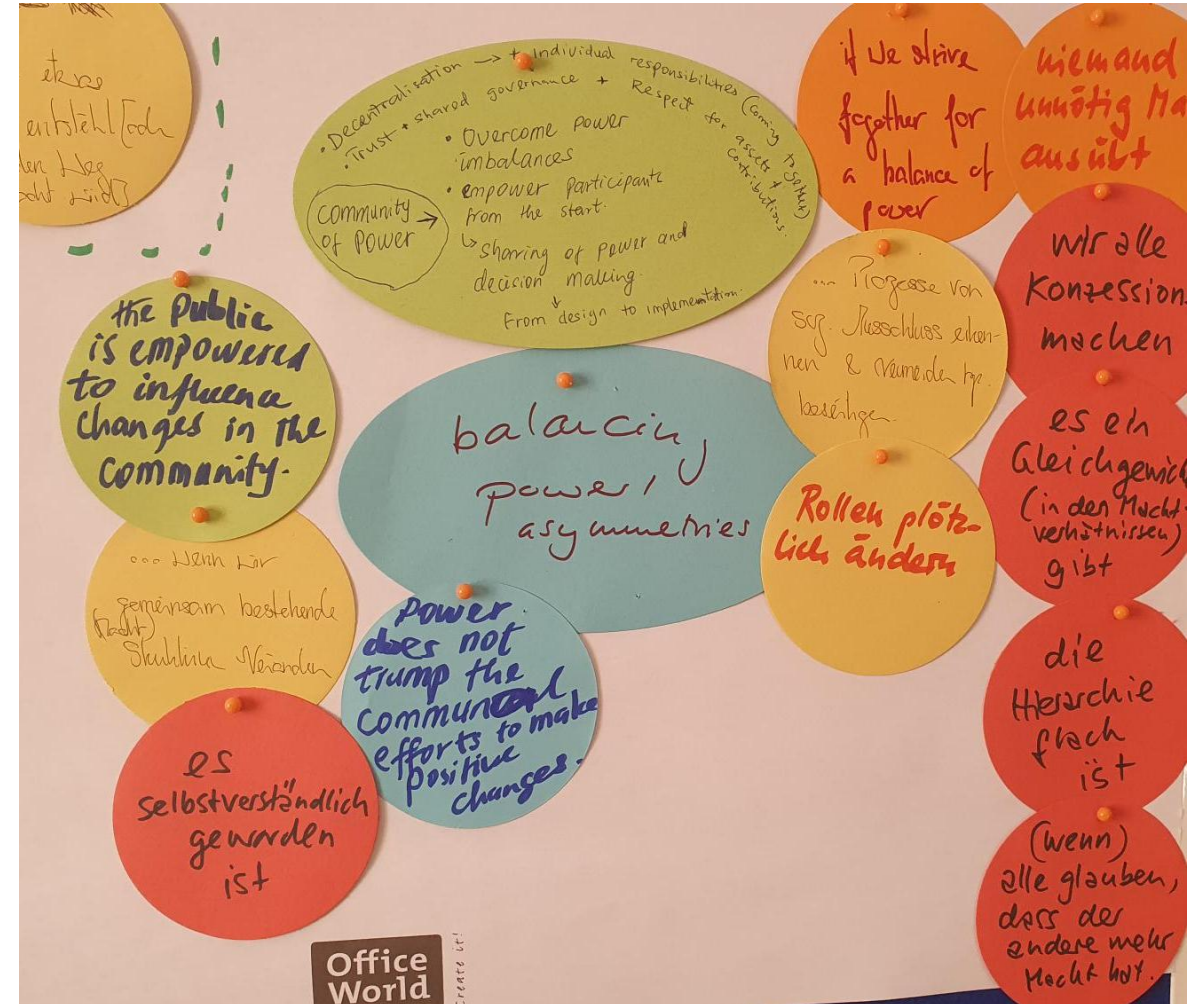 etwas
entsteht (oder
den Weg
• Decentralisation → + Individual responsibilities (coming together)
• Trust + shared governance + Respect for assets + contributions.
• Overcome power
imbalances
• empower participants
from the start.
↳ sharing of power and
decision making.
↓
From design to implementation.
Community →
of Power
if we strive
together for
a balance of
power
niemand
unnötig Ma
ausübt
wir alle
Konzession
machen
... Prozesse von
soz. Ausschluss erken-
nen & vermeiden bzw.
beseitigen
the public
is empowered
to influence
changes in the
community.
balancing
power/
asymmetries
es ein
Gleichgewich
(in den Macht-
verhältnissen)
gibt
Rollen plötz-
lich ändern
... wenn wir
gemeinsam bestehende
(Macht)
Strukturen verändern
power
does not
trump the
communal
efforts to make
positive
changes.
die
Hierarchie
flach
ist
es
selbstverständlich
geworden
ist
(wenn)
alle glauben,
dass der
andere mehr
Macht hat.
Office
World
create it!